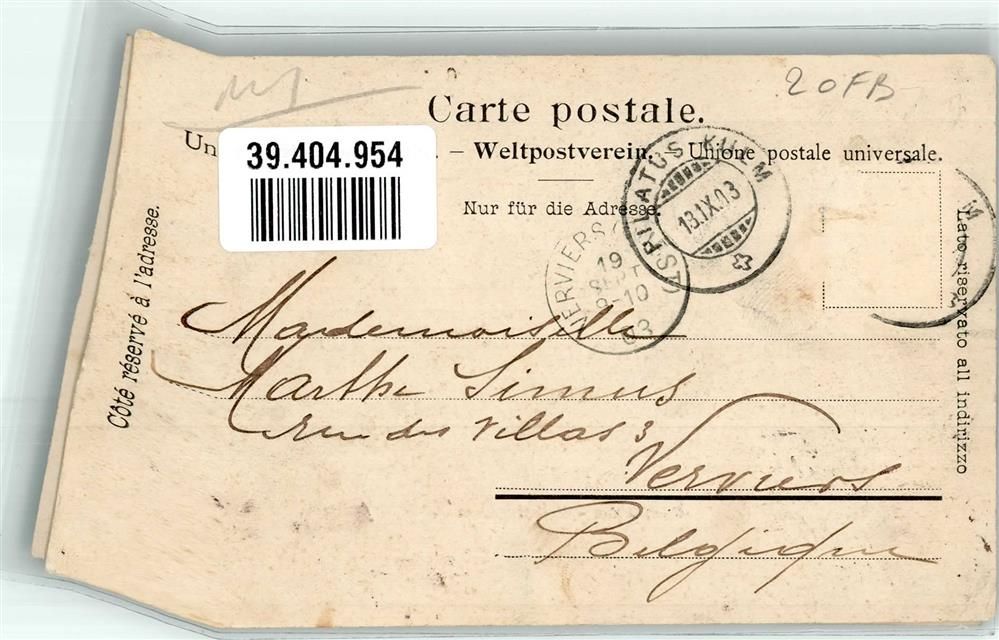 20FB
Carte postale.
Un
39.404.954
– Weltpostverein. – Unione postale universale.
Nur für die Adresse.
PILATUS KULM
13.IX.03
M
VERVIERS
19
SEPT
9-10
03
Côté réservé à l'adresse.
Lato riservato all indirizzo
Mademoiselle
Marthe Simus
rue des Villas 3
Verviers
Belgique